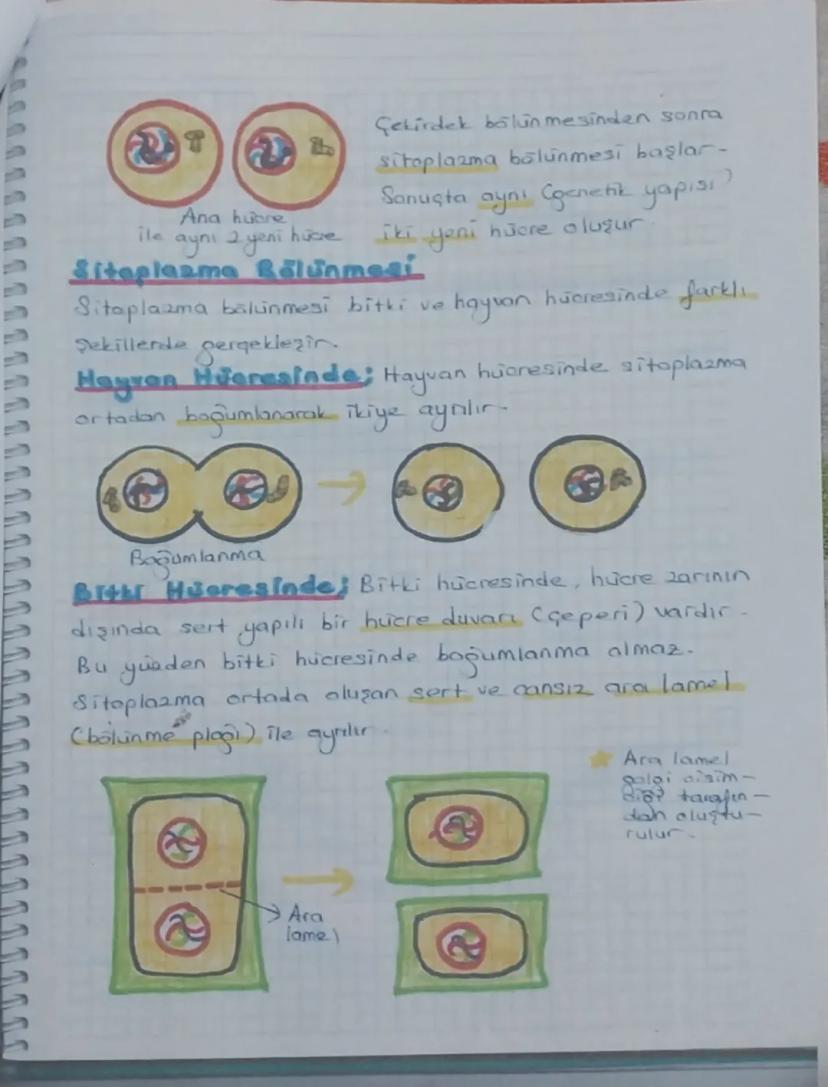 Çekirdek bölünmesinden sonra
sitoplazma bölünmesi başlar.
Sonuçta aynı (genetik yapısı)
iki yeni hücre oluşur.
Ana hücre
ile aynı 2 yeni hücre
Sitoplazma Bölünmesi
Sitoplazma bölünmesi bitki ve hayvan hücresinde farklı
şekillerde gerçekleşir.
Hayvan Hücresinde; Hayvan hücresinde sitoplazma
ortadan boğumlanarak ikiye ayrılır.
Boğumlanma
Bitki Hücresinde; Bitki hücresinde, hücre zarının
dışında sert yapılı bir hücre duvarı (çeperi) vardır.
Bu yüzden bitki hücresinde boğumlanma olmaz.
Sitoplazma ortada oluşan sert ve cansız ara lamel
(bölünme plağı) ile ayrılır.
Ara lamel
golgi cisim-
ciği tarafın-
dan oluştu-
rulur.
Ara
lamel